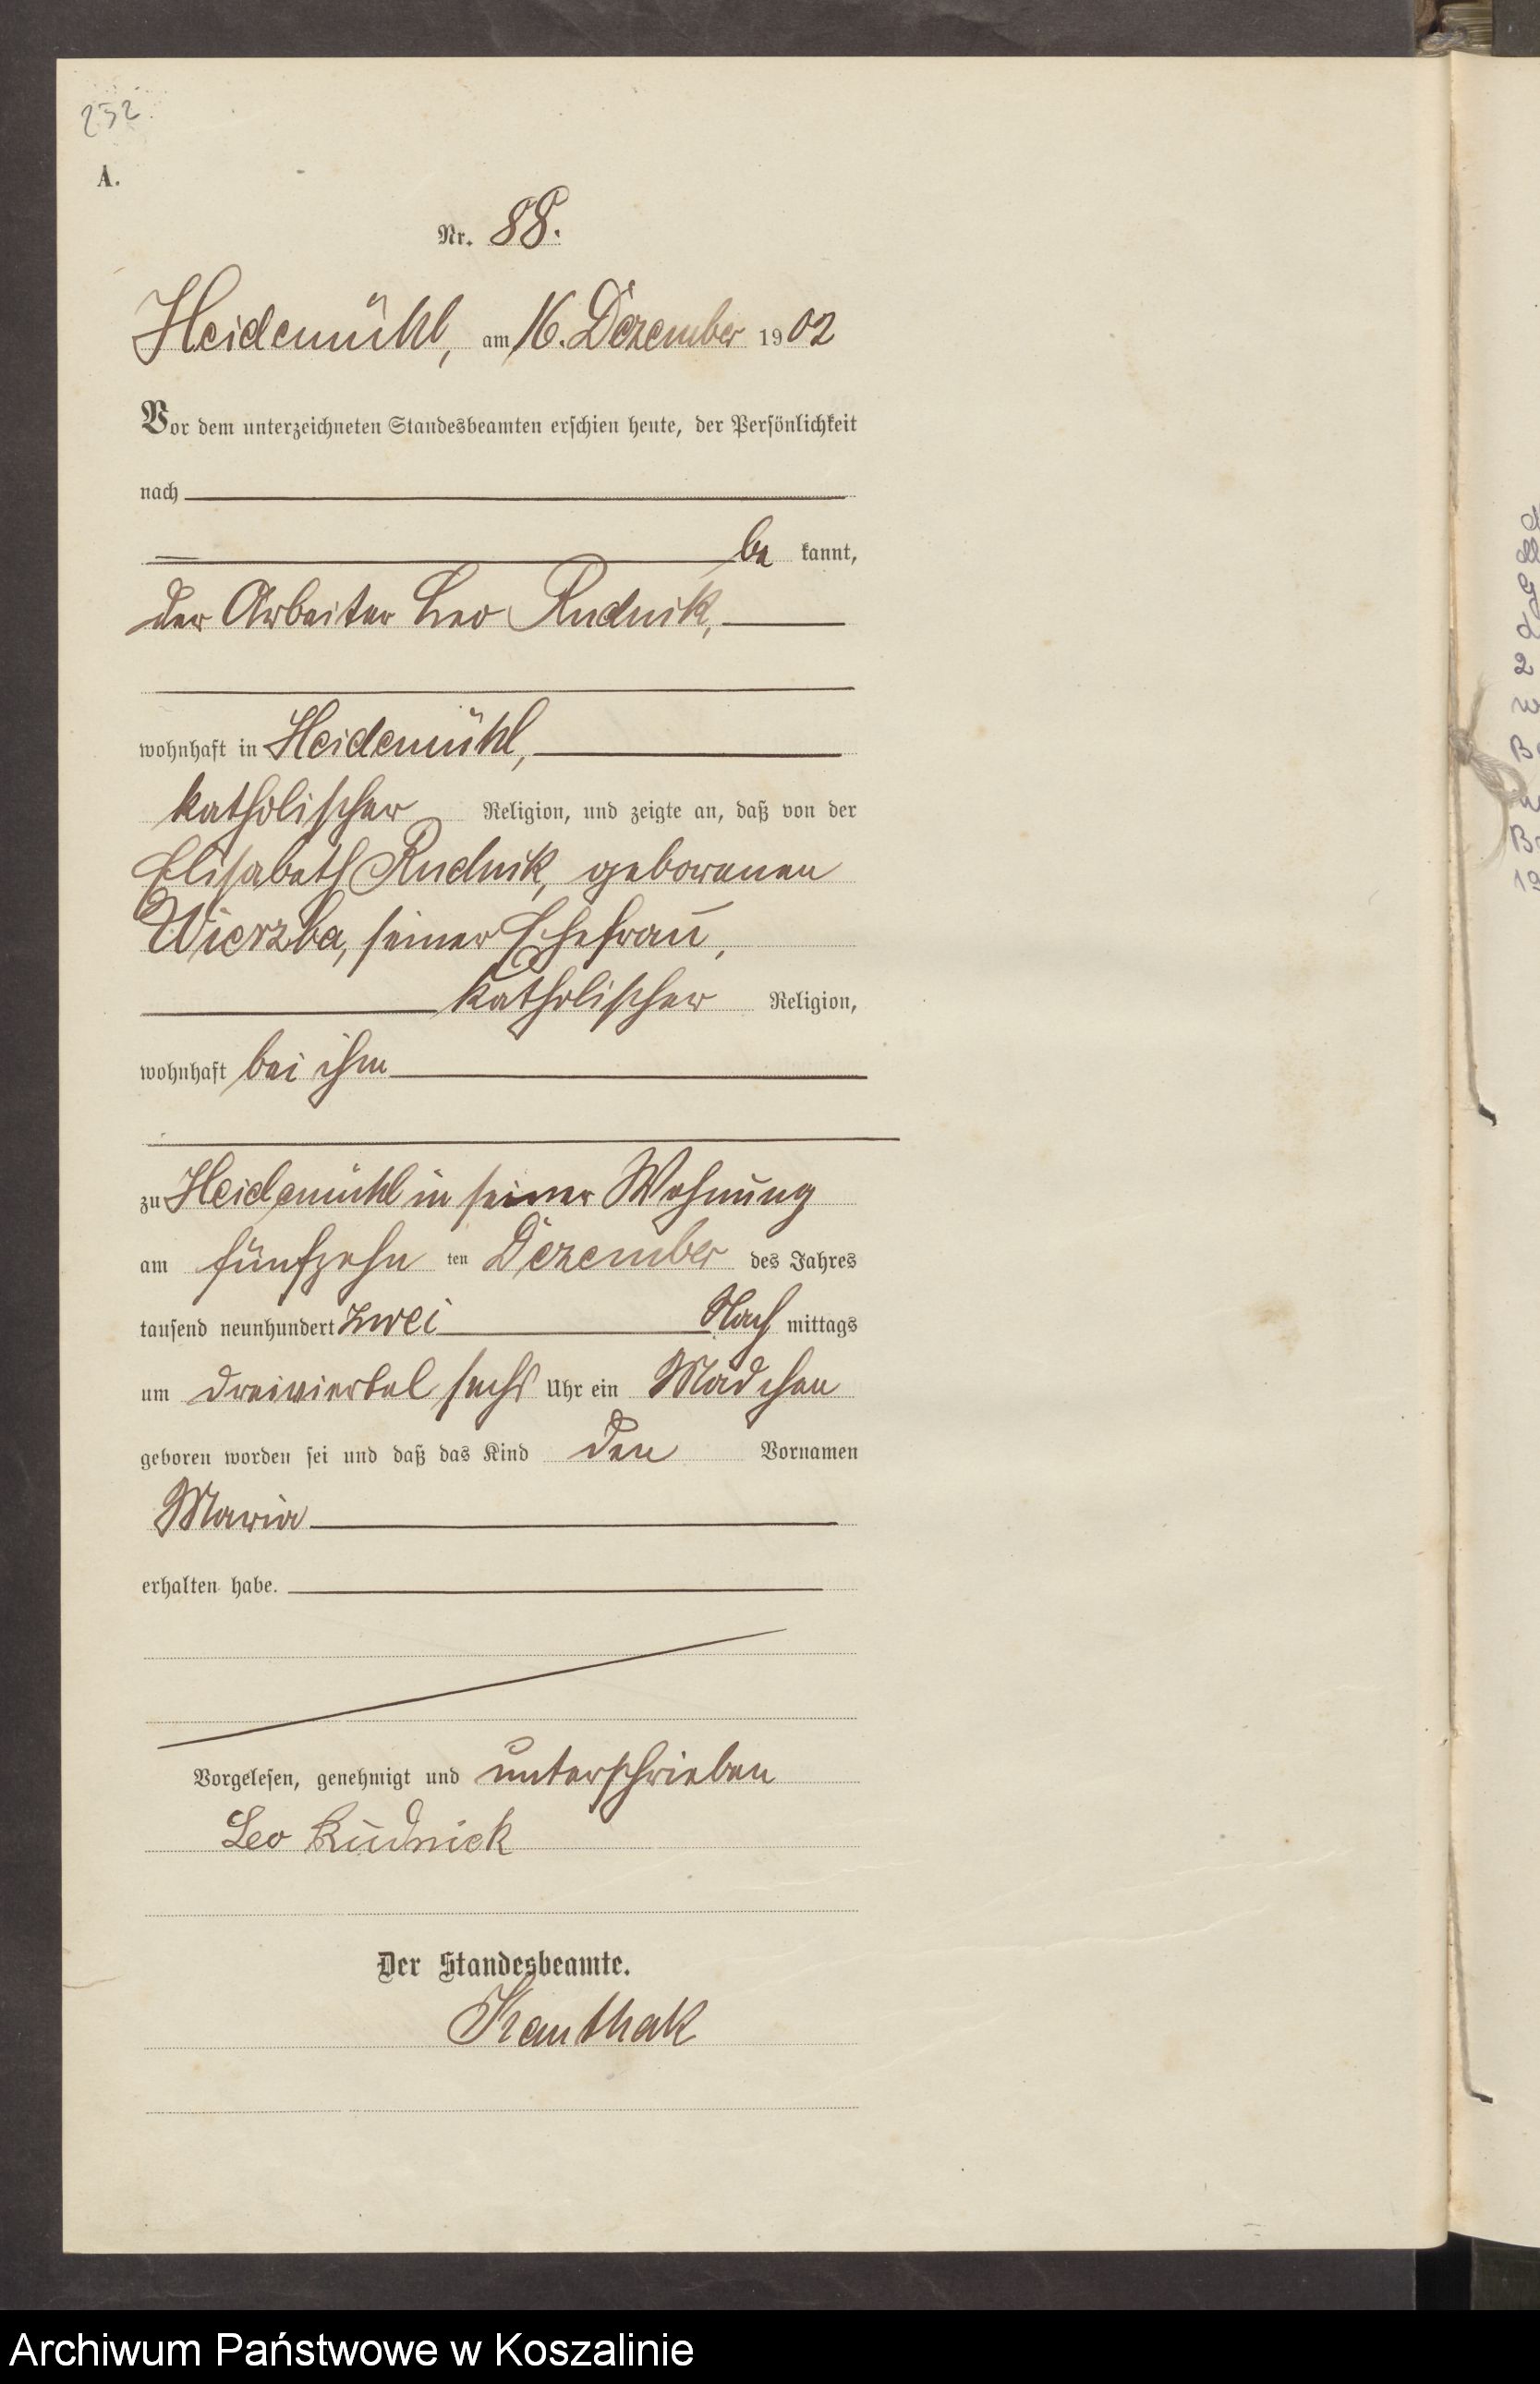 232
A.
Nr. 88.
Heidemühl, am 16. Dezember 1902
Vor dem unterzeichneten Standesbeamten erschien heute, der Persönlichkeit
nach
be kannt,
der Arbeiter Leo Rudnik,
wohnhaft in Heidemühl,
katholischer Religion, und zeigte an, daß von der
Elisabeth Rudnik, geborenen
Wierzba, seiner Ehefrau,
katholischer Religion,
wohnhaft bei ihm
zu Heidemühl in seiner Wohnung
am fünfzehn ten Dezember des Jahres
tausend neunhundert zwei Nach mittags
um dreiviertel sechs Uhr ein Mädchen
geboren worden sei und daß das Kind den Vornamen
Maria
erhalten habe.
Vorgelesen, genehmigt und unterschrieben
Leo Rudnick
Der Standesbeamte.
Kauthak
Archiwum Państwowe w Koszalinie